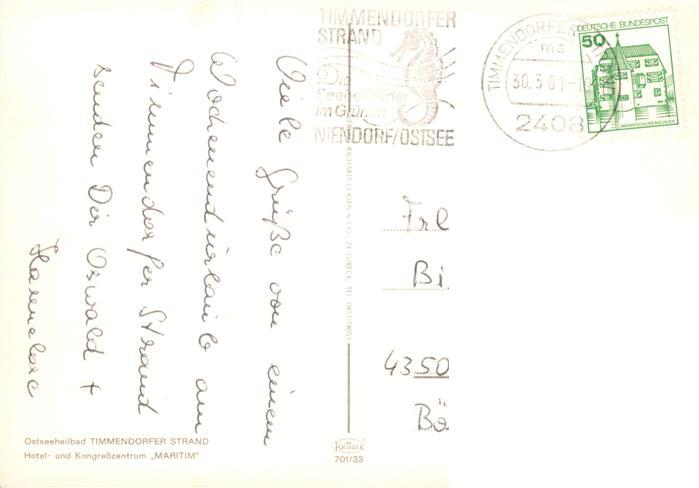 Viele Grüße von einem
Wochenendurlaub am
Timmendorfer Strand
senden Dir Oswald +
Hannelore
TIMMENDORFER
STRAND
Die
Seeheilbäder
im Grünen
NIENDORF/OSTSEE
TIMMENDORFER
ma
30.3.81
2408
DEUTSCHE BUNDESPOST
50
WASSERSCHLOSS INZLINGEN
Frl
Bi
4350
Bö
Ostseeheilbad TIMMENDORFER STRAND
Hotel- und Kongreßzentrum „MARITIM"
Krüger
701/33